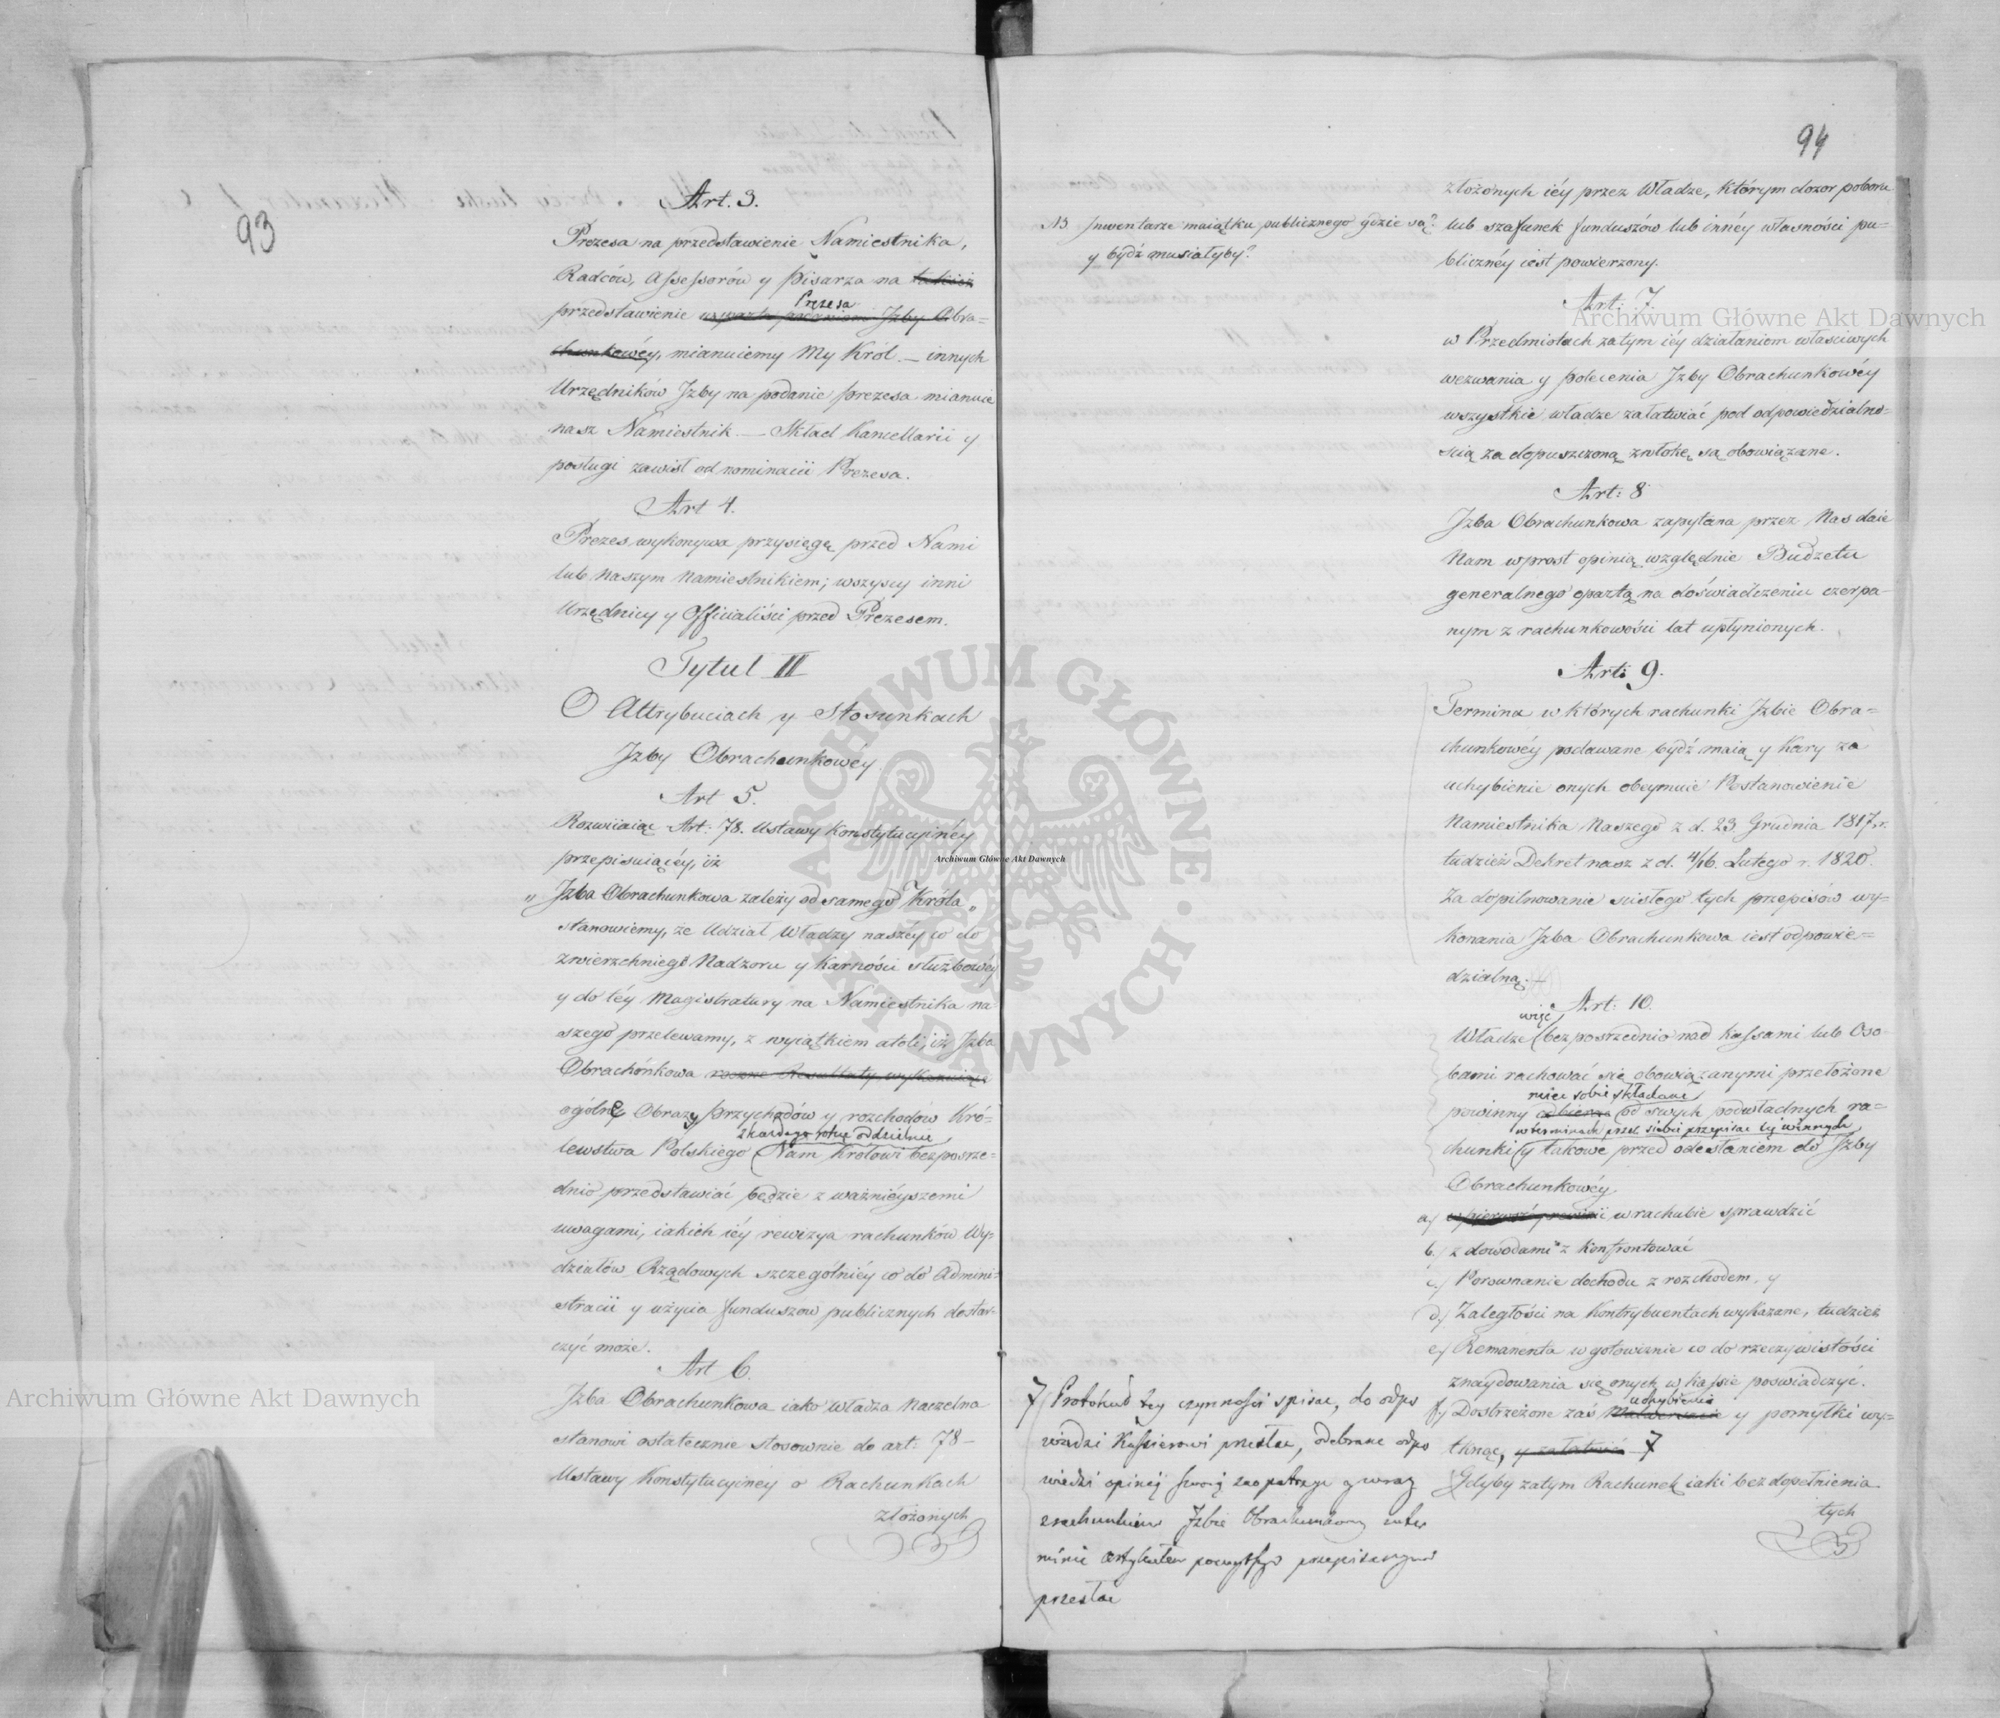 93
Art. 3.
Prezesa na przedstawienie Namiestnika,
Radców, Assessorów y Pisarza na
przedstawienie Prezesa Izby Obra=
chunkowéy, mianuiemy My Król — innych
Urzędników Izby na podanie prezesa mianuie
nasz Namiestnik — Skład Kancellarii y
posługi zawisł od nominacii Prezesa.
Art 4.
Prezes wykonywa przysięgę przed Nami
lub naszym Namiestnikiem; wszyscy inni
Urzędnicy y Officialiści przed Prezesem.
Tytuł III
O Attrybuciach y Stosunkach
Izby Obrachunkowéy
Art 5.
Rozwiiaiąc Art: 78. Ustawy Konstytucyinéy
przepisuiącéy, iż
„Izba Obrachunkowa zależy od samego Króla„
stanowiemy, że Udział Władzy naszéy co do
zwierzchniego Nadzoru y Karności służbowéy
y do téy Magistratury na Namiestnika na
szego przelewamy, z wyiątkiem atoli, iż Izba
Obrachónkowa roczne Resultaty wykazuiące
ogólne Obrazy przychodów y rozchodów Kró=
z każdego roku oddzielnie
lewstwa Polskiego Nam Królowi bezpośrze=
dnio przedstawiać będzie z ważniéyszemi
uwagami, iakich iéy rewizya rachunków Wy=
działów Rządowych szczególniéy co do Admini=
stracii y użycia funduszow publicznych dostar=
czyć może.
Art 6.
Izba Obrachunkowa iako Władza Naczelna
stanowi ostatecznie stosownie do art: 78 —
Ustawy Konstytucyinéy o Rachunkach
złożonych
94
NB. Inwentarze maiątku publicznego gdzie są?
y bydź musiałyby?
złożonych iéy przez Władze, którym dozor poboru
lub szafunek funduszów lub innéy własności pu=
blicznéy iest powierzony.
Art: 7.
w Przedmiotach zatym iéy działaniom właściwych
wezwania y polecenia Izby Obrachunkowéy
wszystkie władze załatwiać pod odpowiedzialno=
ścią za dopuszczoną zwłokę są obowiązane.
Art: 8
Izba Obrachunkowa zapytana przez Nas daie
Nam wprost opinią względnie Budżetu
generalnego opartą na doświadczeniu czerpa=
nym z rachunkowości lat upłynionych.
Art: 9.
Termina w których rachunki Izbie Obra=
chunkowéy podawane bydź maią y Kary za
uchybienie onych obeymuie Postanowienie
Namiestnika Naszego z d. 23. Grudnia 1817. r.
tudzież Dekret nasz z d. 4/16. Lutego r. 1820.
Za dopilnowanie ścisłego tych przepisów wy=
konania Izba Obrachunkowa iest odpowie=
dzialną. —
Art: 10.
więc
Władze bezpośrzednio nad Kassami lub Oso
bami rachować się obowiązanymi przełożone
sobie składane
powinny odbierać od swych podwładnych ra=
w terminach przez siebie przepisać się winnych
chunki y takowe przed odesłaniem do Izby
Obrachunkowéy
a/ w pierwszéy rewizii w rachubie sprawdzić
b./ z dowodami z konfrontować
c./ Porownanie dochodu z rozchodem, y
d/ Zaległości na Kontrybuentach wykazane, tudzież
e/ Remanenta w gotowiznie co do rzeczywistości
znaydowania się onych w Kassie poswiadczyć.
uchybienia
f./ Dostrzeżone zaś y pomyłki wy=
tknąć, y załatwić 7
Gdyby zatym Rachunek iaki bez dopełnienia
tych
7 Protokuł téy czynności spisać, do odpo
wiedzi Kassierowi przesłać, odebrane odpo
wiedzi opinią swoią zaopatrzyć y wraz
z rachunkiem Izbie Obrachunkowéy w ter
minie Artykułem powyższym przepisanym
przesłać
Archiwum Główne Akt Dawnych
Archiwum Główne Akt Dawnych
Archiwum Główne Akt Dawnych
ARCHIWUM GŁÓWNE AKT DAWNYCH